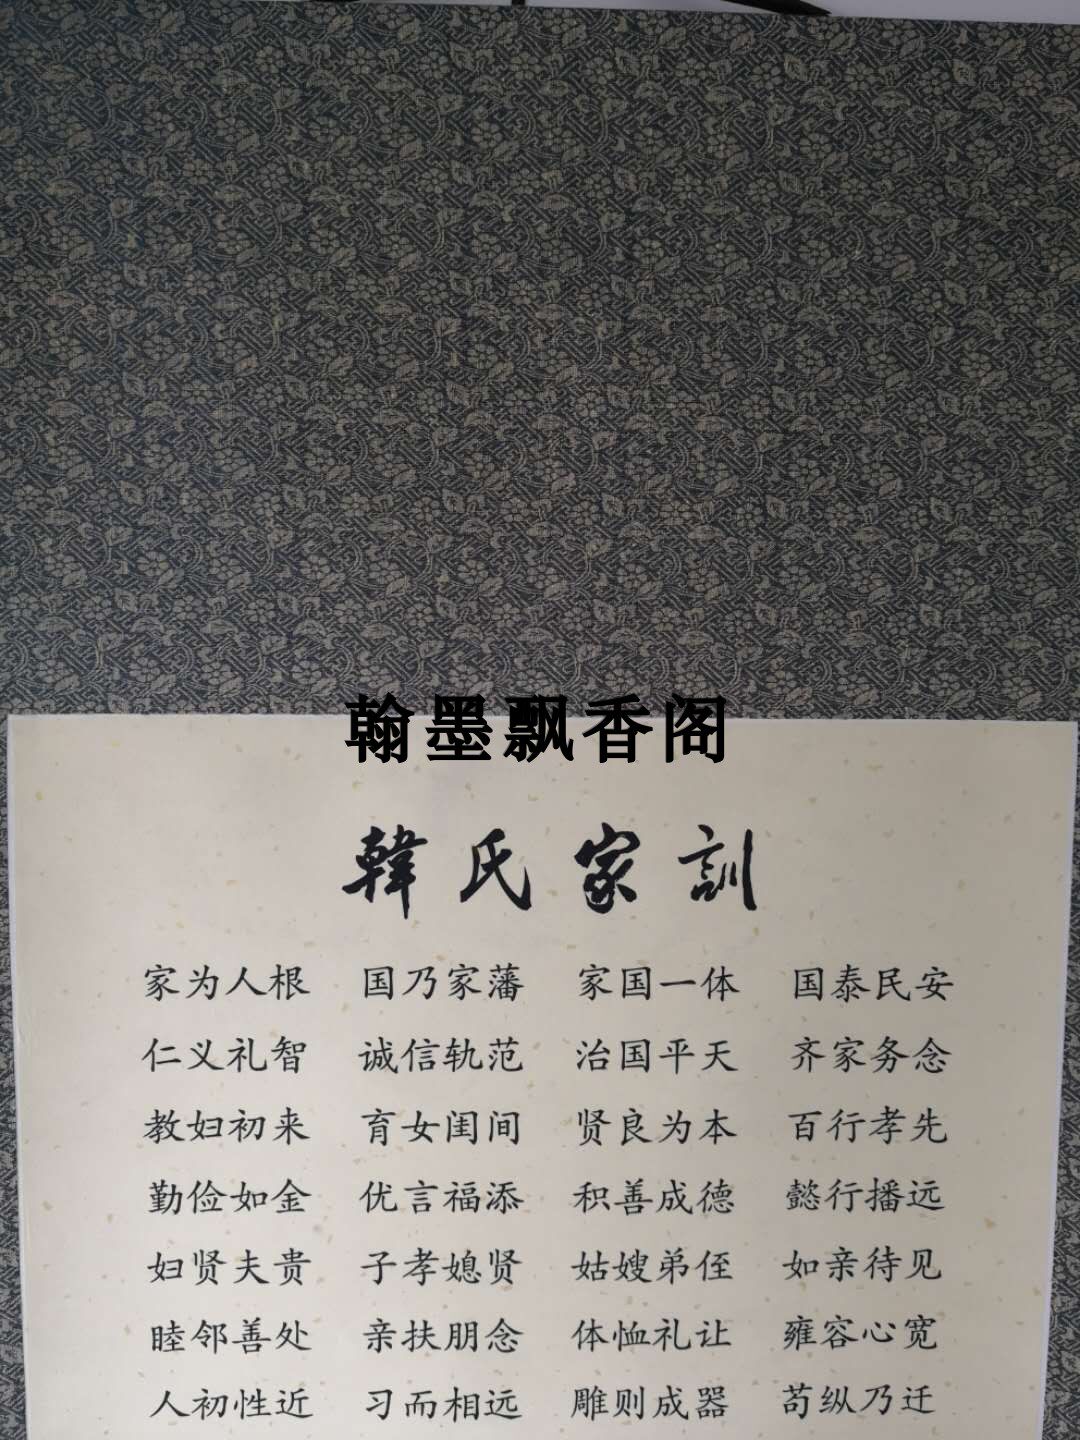 翰墨飘香阁
韓氏家訓
家为人根 国乃家藩 家国一体 国泰民安
仁义礼智 诚信轨范 治国平天 齐家务念
教妇初来 育女闺间 贤良为本 百行孝先
勤俭如金 优言福添 积善成德 懿行播远
妇贤夫贵 子孝媳贤 姑嫂弟侄 如亲待见
睦邻善处 亲扶朋念 体恤礼让 雍容心宽
人初性近 习而相远 雕则成器 苟纵乃迁